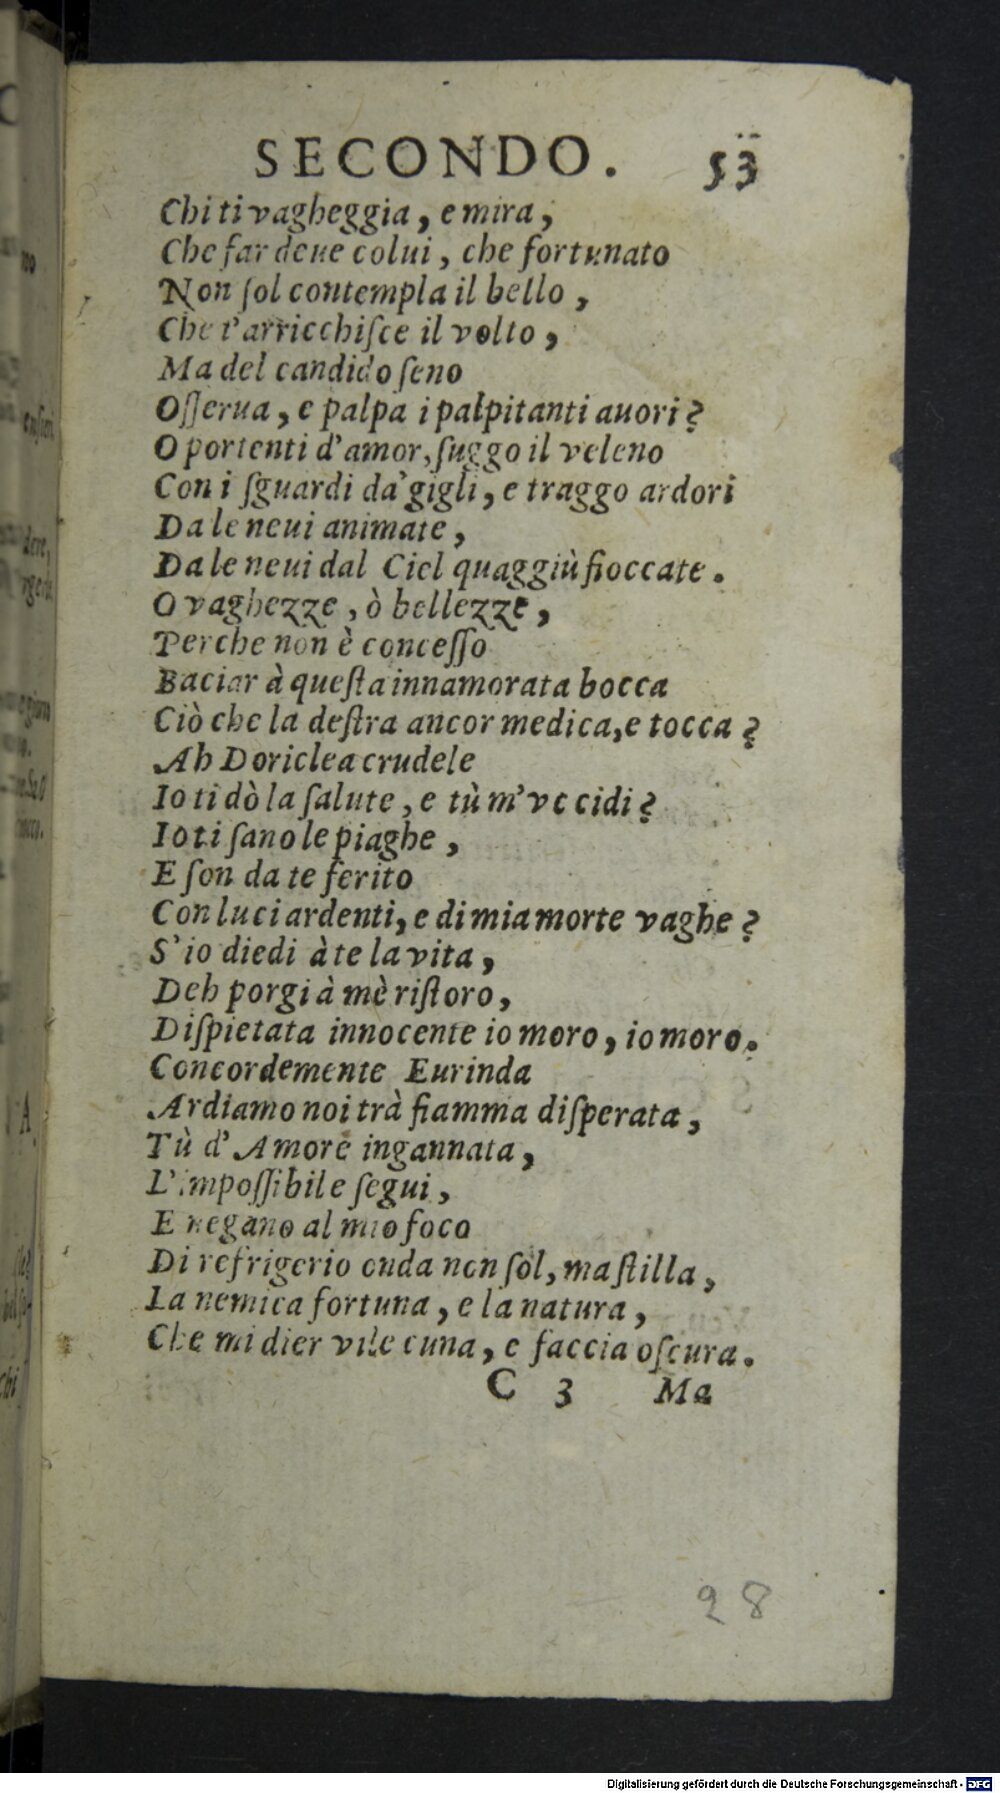 SECONDO. 53
Chi ti vagheggia, e mira,
Che far deue colui, che fortunato
Non ſol contempla il bello,
Che t'arricchiſce il volto,
Ma del candido ſeno
Oſſerua, e palpa i palpitanti auori?
O portenti d'amor, ſuggo il veleno
Con i ſguardi da' gigli, e traggo ardori
Da le neui animate,
Da le neui dal Ciel quaggiù fioccate.
O vaghezze, ò bellezze,
Perche non è conceſſo
Baciar à queſta innamorata bocca
Ciò che la deſtra ancor medica, e tocca?
Ah Doriclea crudele
Io ti dò la ſalute, e tù m'vccidi?
Io ti ſano le piaghe,
E ſon da te ferito
Con luci ardenti, e di mia morte vaghe?
S'io diedi à te la vita,
Deh porgi à mè riſtoro,
Diſpietata innocente io moro, io moro.
Concordemente Eurinda
Ardiamo noi trà fiamma diſperata,
Tù d'Amore ingannata,
L'impoſſibile ſegui,
E negano al mio foco
Di refrigerio onda non ſol, ma ſtilla,
La nemica fortuna, e la natura,
Che mi dier vile cuna, e faccia oſcura.
C 3 Ma
28
Digitalisierung gefördert durch die Deutsche Forschungsgemeinschaft - DFG